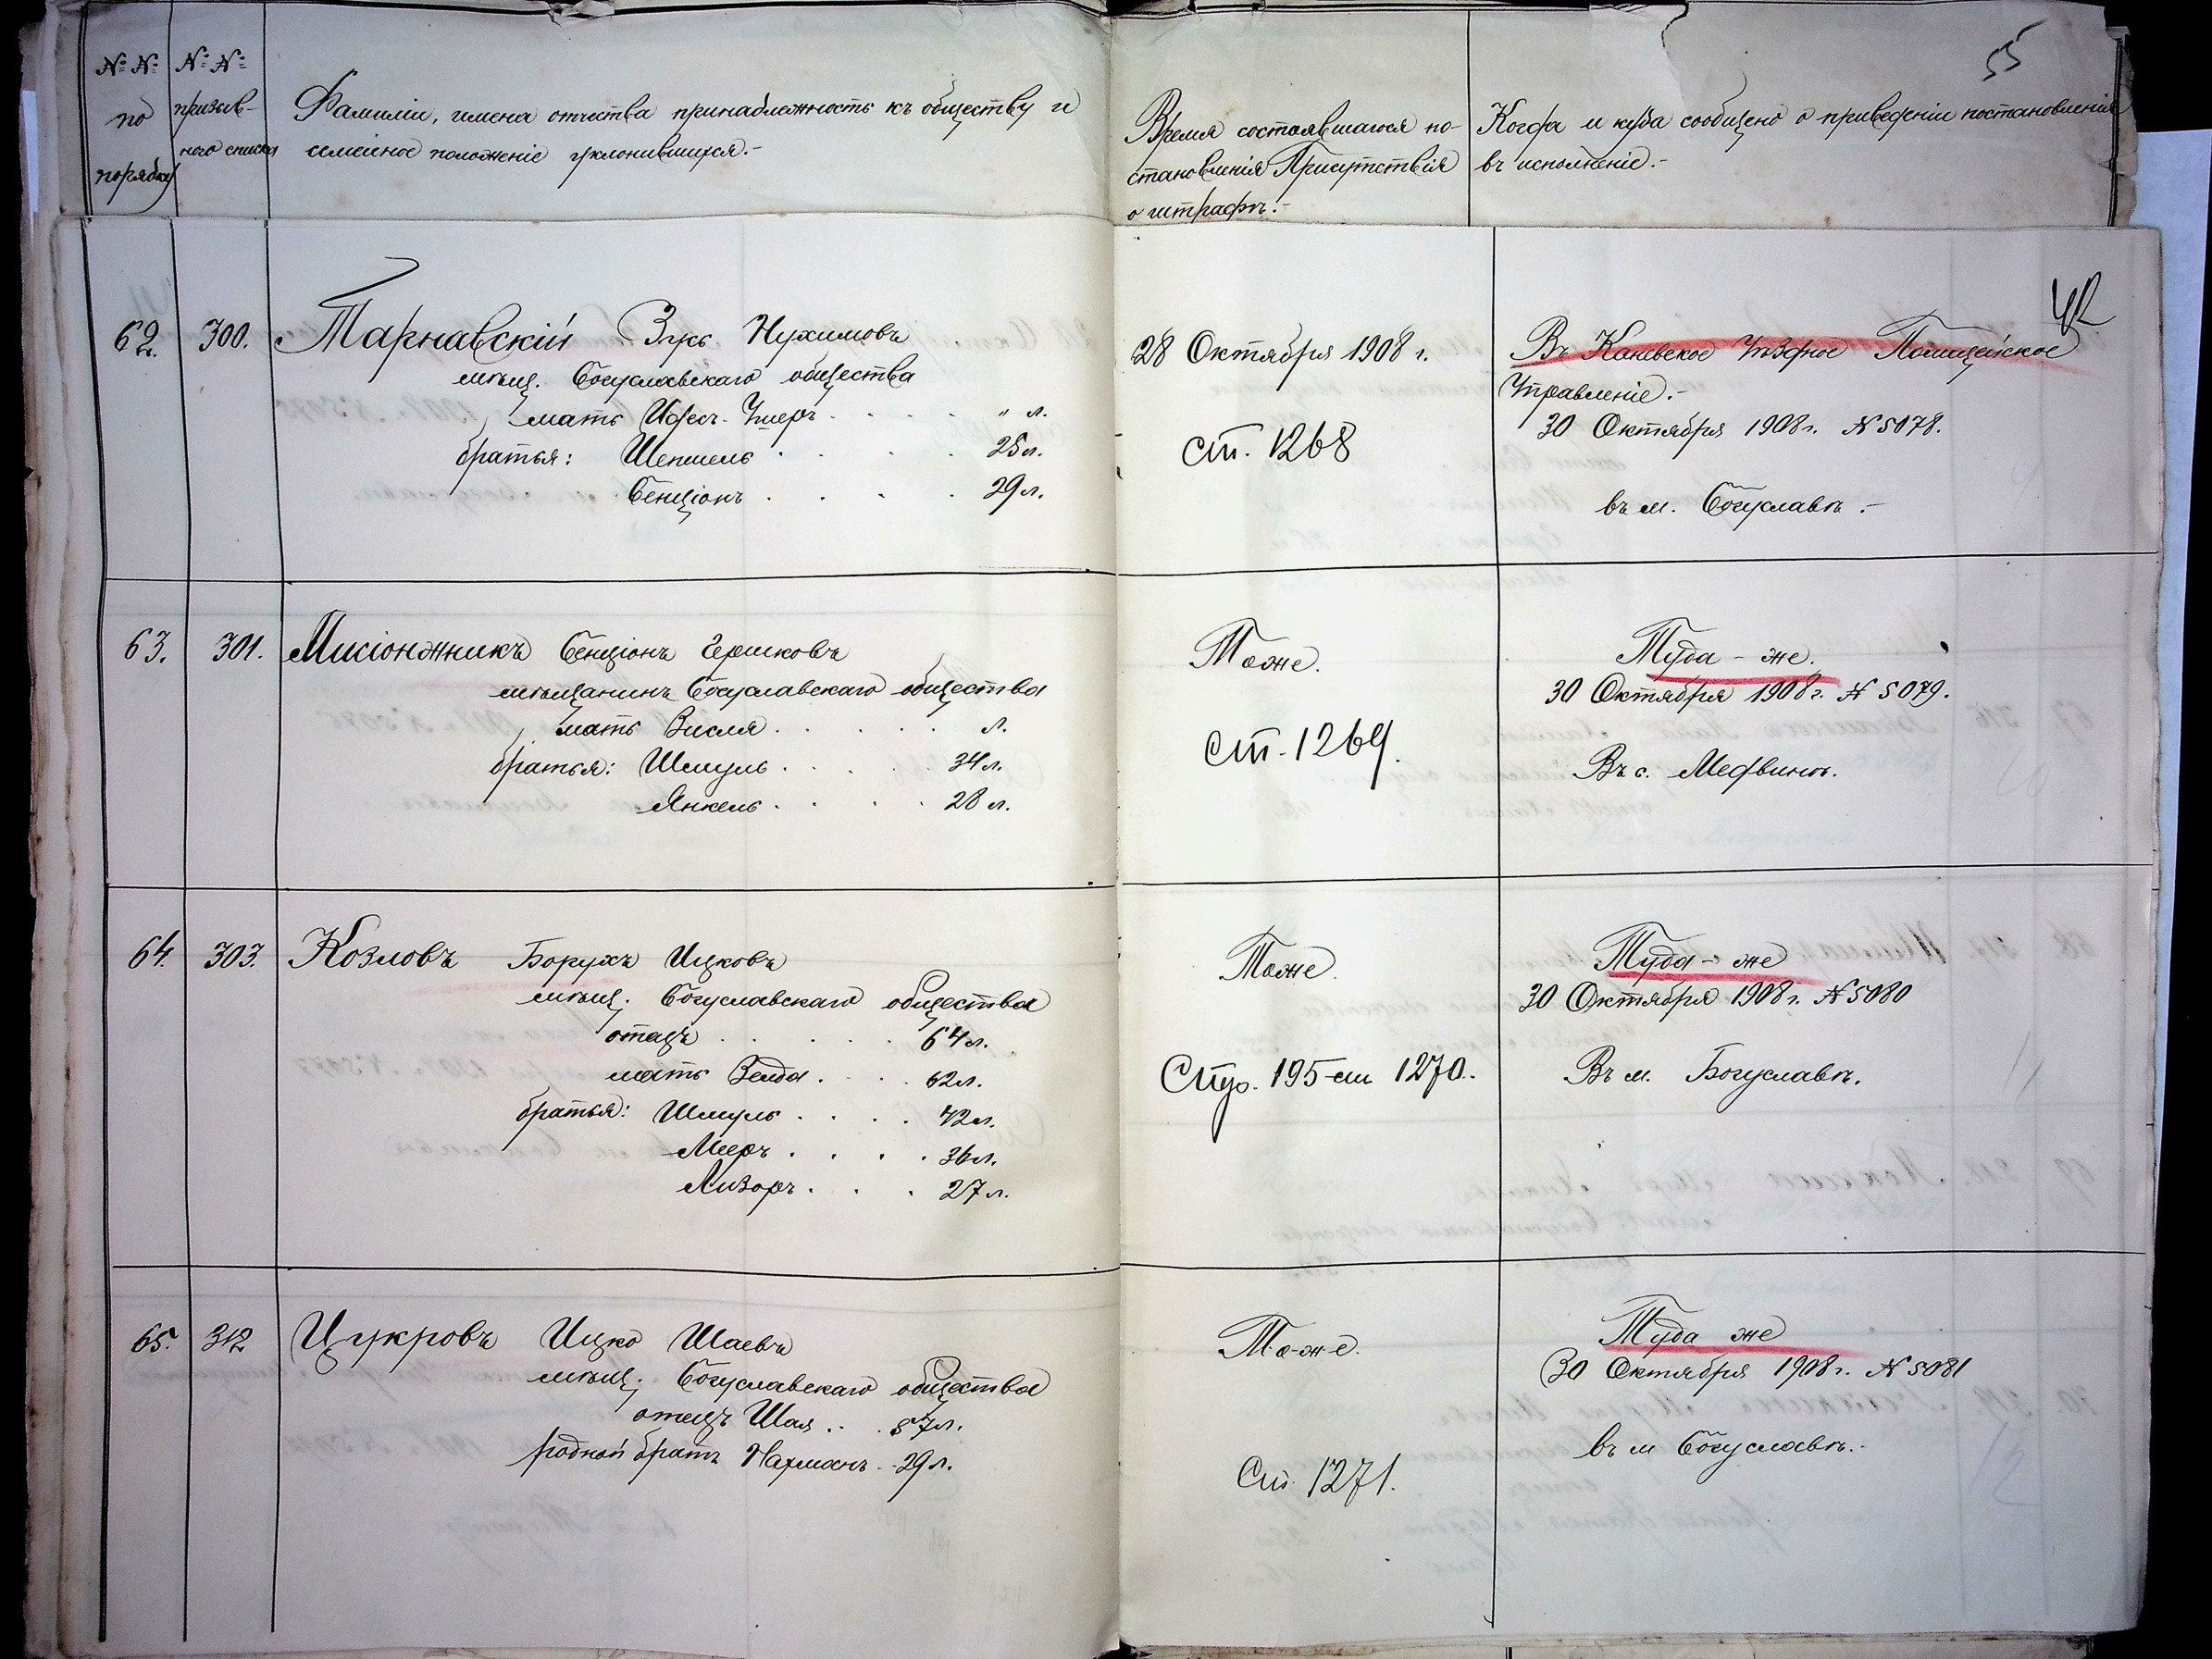 55
№ №
по
порядку
№ №
призыв-
ного списка
Фамиліи, имена отчества принадлежность къ обществу и
семейное положеніе уклонившихся.-
Время состоявшагося по-
становленія Присутствія
о штрафѣ.-
Когда и куда сообщено о приведеніи постановленія
въ исполненіе.-
42
62. 300. Тарнавскій Зусь Нухимовъ
мѣщ. Богуславскаго общества
мать " л.
братья: 25 л.
Бенціонъ 29 л.
28 Октября 1908 г.
Ст. 1268
Въ Каневское Уѣздное Полицейское
Управленіе.-
30 Октября 1908 г. № 5078.
въ м. Богуславѣ.-
63. 301. Мисіонжникъ Бенціонъ Гершковъ
мѣщанинъ Богуславскаго общества
мать Висля л.
братья: Шмуль 34 л.
Янкель 28 л.
Тоже.
Ст. 1269.
Туда-же.
30 Октября 1908 г. № 5079.
Въ с. Медвинѣ.
64. 303. Козловъ Борухъ Ицковъ
мѣщ. Богуславскаго общества
отецъ 64 л.
мать Велда 62 л.
братья: Шмуль 42 л.
Мееръ 36 л.
Лизоръ 27 л.
Тоже.
Стр. 195 ст 1270.
Туда-же
30 Октября 1908 г. № 5080
Въ м. Богуславѣ.
65. 312 Цукровъ Ицко Шаевъ
мѣщ. Богуславскаго общества
отецъ Шая 57 л.
родной братъ Нахманъ 29 л.
То-же.
Ст. 1271.
Туда же
30 Октября 1908 г. № 5081
въ м Богуславѣ.-